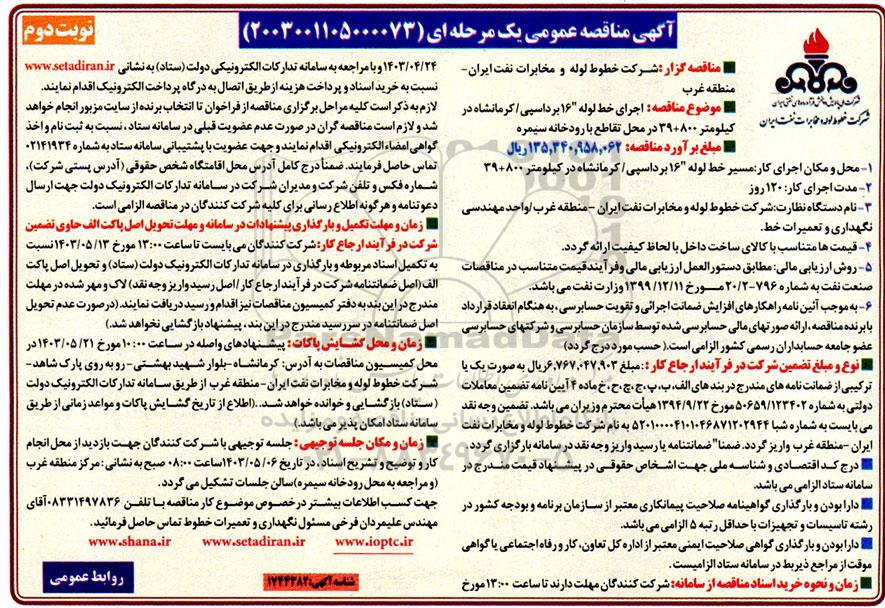 آگهی مناقصه عمومی یک مرحله ای (۲۰۰۳۰۰۱۱۰۵۰۰۰۰۷۳)
نوبت دوم
شرکت ملی پالایش و پخش فرآورده‌های نفتی ایران
شرکت خطوط لوله و مخابرات نفت ایران
مناقصه گزار: شرکت خطوط لوله و مخابرات نفت ایران-
منطقه غرب
موضوع مناقصه: اجرای خط لوله "۱۶ برداسپی/ کرمانشاه در
کیلومتر ۸۰۰+۳۹ در محل تقاطع با رودخانه سیمره
مبلغ برآورد مناقصه: ۱۳۵,۳۴۰,۹۵۸,۰۶۲ ریال
۱- محل و مکان اجرای کار: مسیر خط لوله "۱۶ برداسپی/ کرمانشاه در کیلومتر ۸۰۰+۳۹
۲- مدت اجرای کار: ۱۲۰ روز
۳- نام دستگاه نظارت: شرکت خطوط لوله و مخابرات نفت ایران - منطقه غرب/واحد مهندسی
نگهداری و تعمیرات خط.
۴- قیمت ها متناسب با کالای ساخت داخل با لحاظ کیفیت ارائه گردد.
۵- روش ارزیابی مالی: مطابق دستورالعمل ارزیابی مالی و فرآیند قیمت متناسب در مناقصات
صنعت نفت به شماره ۷۹۶-۲۰/۲ مورخ ۱۳۹۹/۱۲/۱۱ وزارت نفت می باشد.
۶- به موجب آئین نامه راهکارهای افزایش ضمانت اجرائی و تقویت حسابرسی، به هنگام انعقاد قرارداد
با برنده مناقصه، ارائه صورتهای مالی حسابرسی شده توسط سازمان حسابرسی و شرکتهای حسابرسی
عضو جامعه حسابداران رسمی کشور الزامی است.(حسب مورد درج گردد)
نوع و مبلغ تضمین شرکت در فرآیند ارجاع کار: : مبلغ ۶,۷۶۷,۰۴۷,۹۰۳ ریال به صورت یک یا
ترکیبی از ضمانت نامه های مندرج در بندهای الف، ب، پ، ج، چ، ح، خ ماده ۴ آیین نامه تضمین معاملات
دولتی به شماره ۱۲۳۴۰۲/ت۵۰۶۵۹ مورخ ۱۳۹۴/۹/۲۲ هیأت محترم وزیران می باشد. تضمین وجه نقد
می بایست به شماره شبا ۵۲۰۱۰۰۰۰۴۱۰۱۰۴۶۸۷۱۲۰۲۹۴۴ به نام شرکت خطوط لوله و مخابرات نفت
ایران -منطقه غرب واریز گردد. ضمنا" ضمانتنامه یا رسید واریز وجه نقد در سامانه بارگزاری گردد.
درج کد اقتصادی و شناسه ملی جهت اشخاص حقوقی در پیشنهاد قیمت مندرج در
سامانه ستاد الزامی می باشد.
دارا بودن و بارگذاری گواهینامه صلاحیت پیمانکاری معتبر از سازمان برنامه و بودجه کشور در
رشته تاسیسات و تجهیزات با حداقل رتبه ۵ الزامی می باشد.
دارا بودن و بارگذاری گواهی صلاحیت ایمنی معتبر از اداره کل تعاون، کار و رفاه اجتماعی یا گواهی
موقت از مراجع ذیربط در سامانه ستاد الزامیست.
زمان و نحوه خرید اسناد مناقصه از سامانه: شرکت کنندگان مهلت دارند تا ساعت ۱۳:۰۰ مورخ
۱۴۰۳/۰۴/۲۴ و با مراجعه به سامانه تدارکات الکترونیکی دولت (ستاد) به نشانی www.setadiran.ir
نسبت به خرید اسناد و پرداخت هزینه از طریق اتصال به درگاه پرداخت الکترونیک اقدام نمایند.
لازم به ذکر است کلیه مراحل برگزاری مناقصه از فراخوان تا انتخاب برنده از سایت مزبور انجام خواهد
شد و لازم است مناقصه گران در صورت عدم عضویت قبلی در سامانه ستاد، نسبت به ثبت نام و اخذ
گواهی امضاء الکترونیکی اقدام نمایند و جهت عضویت با پشتیبانی سامانه ستاد به شماره ۰۲۱۴۱۹۳۴
تماس حاصل فرمایند. ضمناً درج کامل آدرس محل اقامتگاه شخص حقوقی (آدرس پستی شرکت)،
شماره فکس و تلفن شرکت و مدیران شرکت در سامانه تدارکات الکترونیک دولت جهت ارسال
دعوتنامه و هر گونه اطلاع رسانی برای کلیه شرکت کنندگان در مناقصه الزامی است.
زمان و مهلت تکمیل و بارگذاری پیشنهادات در سامانه و مهلت تحویل اصل پاکت الف حاوی تضمین
شرکت در فرآیند ارجاع کار: شرکت کنندگان می بایست تا ساعت ۱۳:۰۰ مورخ ۱۴۰۳/۰۵/۱۳ نسبت
به تکمیل اسناد مربوطه و بارگذاری در سامانه تدارکات الکترونیک دولت (ستاد) و تحویل اصل پاکت
الف (اصل ضمانتنامه شرکت در فرآیند ارجاع کار/ اصل رسید واریز وجه نقد) لاک و مهر شده در مهلت
مندرج در این بند به دفتر کمیسیون مناقصات نیز اقدام و رسید دریافت نمایند.(در صورت عدم تحویل
اصل ضمانتنامه در سررسید مندرج در این بند، پیشنهاد بازگشایی نخواهد شد.)
زمان و محل گشایش پاکات: پیشنهادهای واصله در ساعت ۱۰:۰۰ مورخ ۱۴۰۳/۰۵/۲۱ در
محل کمیسیون مناقصات به آدرس: کرمانشاه-بلوار شهید بهشتی-رو به روی پارک شاهد-
شرکت خطوط لوله و مخابرات نفت ایران-منطقه غرب از طریق سامانه تدارکات الکترونیک دولت
( ستاد) بازگشایی و خوانده خواهد شد..(اطلاع از تاریخ گشایش پاکات و مواعد زمانی از طریق
سامانه ستاد امکان پذیر می باشد.)
زمان و مکان جلسه توجیهی: جلسه توجیهی با شرکت کنندگان جهت بازدید از محل انجام
کار و توضیح و تشریح اسناد، در تاریخ ۱۴۰۳/۰۵/۰۶ ساعت ۰۸:۰۰ صبح به نشانی: مرکز منطقه غرب
(و مراجعه به محل رودخانه سیمره) سالن جلسات تشکیل می گردد.
جهت کسب اطلاعات بیشتر در خصوص موضوع کار مناقصه با تلفن ۰۸۳۳۱۴۹۷۸۳۶ آقای
مهندس علیمردان فرخی مسئول نگهداری و تعمیرات خطوط تماس حاصل فرمائید.
www.shana.ir www.setadiran.ir www.ioptc.ir
شناسه آگهی: ۱۷۴۴۳۸۲
روابط عمومی